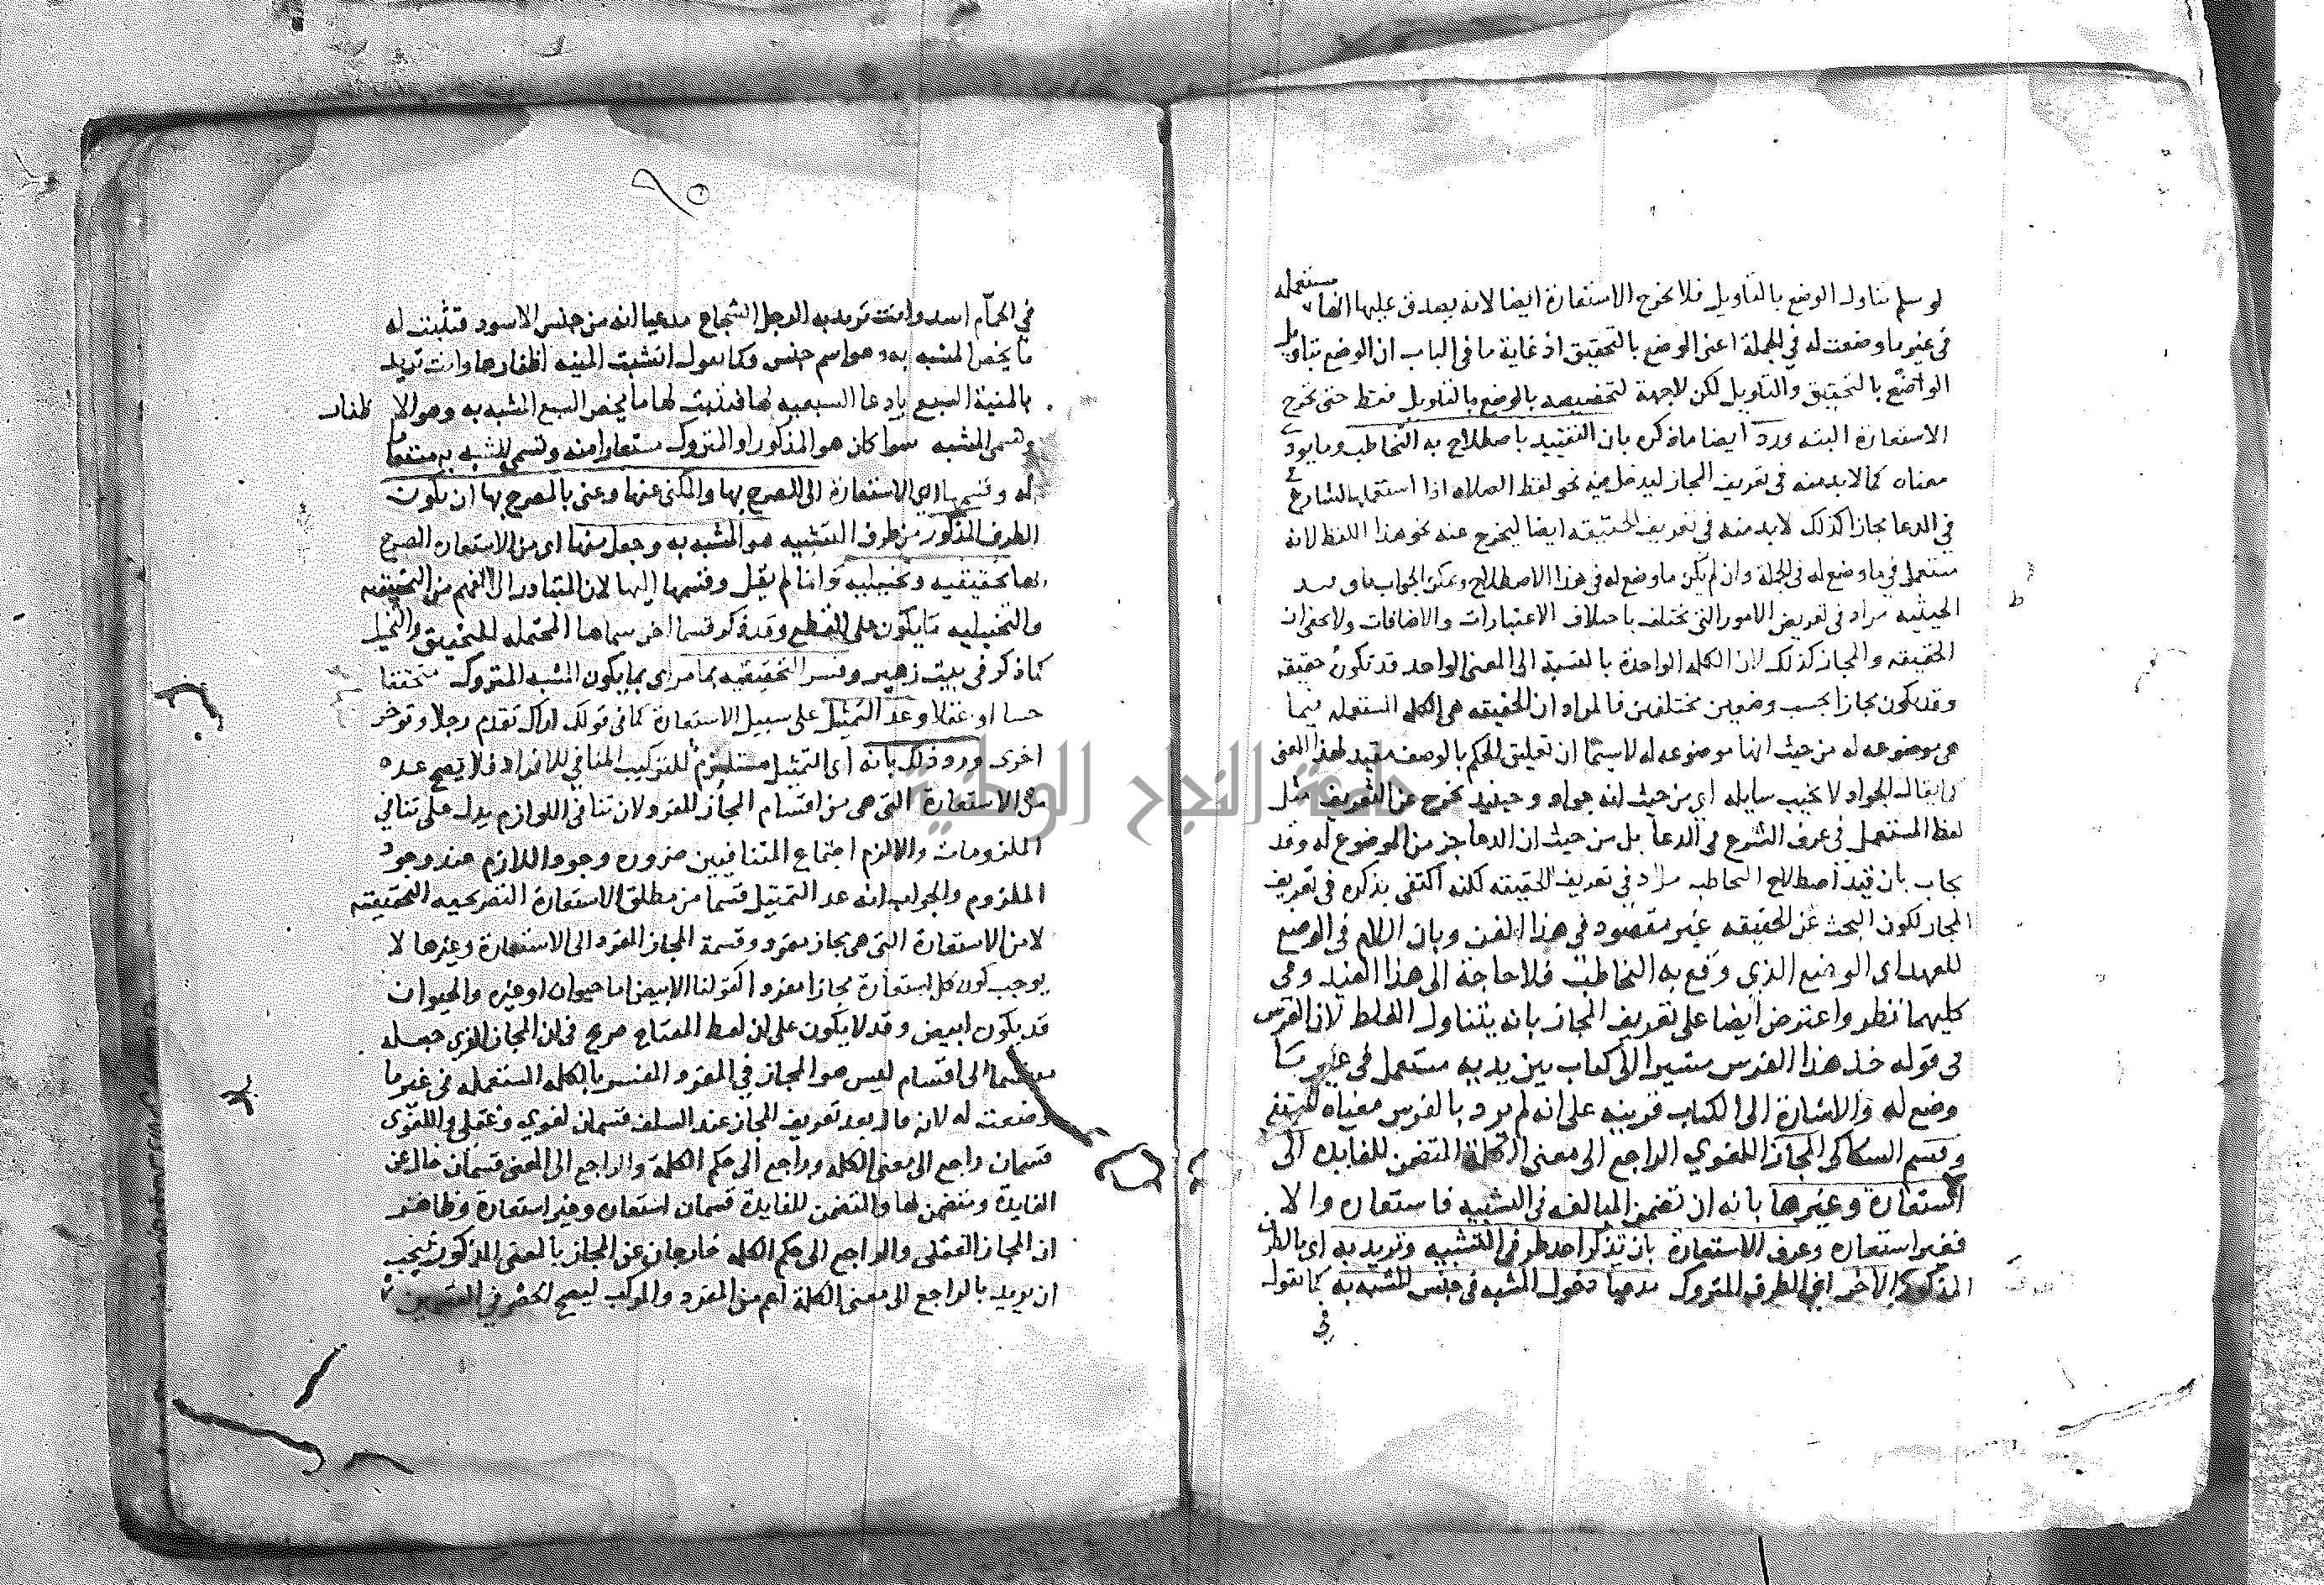 لو سلم تناول الوضع بالتاويل فلا تخرج الاستعارة ايضا لانه يصدق عليها انها مستعملة
في غير ما وضعت له في الجملة اعنى الوضع بالتحقيق اذ غاية ما في الباب ان الوضع يتناول
الواضع بالتحقيق والتاويل لكن لاجهة لتخصيصه بالوضع بالتاويل فقط حتى تخرج
الاستعارة البتة ورد ايضا ما ذكره بان التقييد باصطلاح به التخاطب وما يودي
معناه كما لابد منه في تعريف المجاز ليدخل فيه نحو لفظ الصلاه اذا استعملها الشارع
في الدعا مجازا كذلك لابد منه في تعريف الحقيقه ايضا ليخرج عنه نحو هذا اللفظ لانه
مستعمل في ما وضع له في الجملة وان لم يكن ما وضع له في هذا الاصطلاح ويمكن الجواب بان قيد
الحيثيه مراد في تعريف الامور التي تختلف باختلاف الاعتبارات والاضافات ولا يخفى ان
الحقيقه والمجاز كذلك لان الكلمه الواحدة بالنسبة الى المعنى الواحد قد تكون حقيقه
وقد يكون مجازا بحسب وضعين مختلفين فالمراد ان الحقيقه هي الكلمه المستعمله فيما
هي موضوعه له من حيث انها موضوعه له لا سيما ان تعليق الحكم بالوصف مفيد لهذا المعنى
كما يقال الجواد لا يخيب سايله اي من حيث انه جواد وحينيذ يخرج عن التعريف مثل
لفظ المستعمل في عرف الشرع في الدعا بل من حيث ان الدعا جز من الموضوع له وقد
يجاب بان قيد اصطلاح التخاطب مراد في تعريف الحقيقه لكنه اكتفى بذكره في تعريف
المجاز لكون البحث عن الحقيقه غير مقصود في هذا الفن وبان اللام في الوضع
للعهد اى الوضع الذي وقع به التخاطب فلا حاجة الى هذا القيد وفي
كليهما نظر واعترض ايضا على تعريف المجاز بانه يتناول الغلط لان الفرس
في قوله خذ هذا الفرس مشيرا الى كتاب بين يديه مستعمل في غير ما
وضع له والاشارة الى الكتاب قرينه على انه لم يرد بالفرس معناه الحقيقي
وقسم السكاكى المجاز اللغوي الراجع الى معنى الكلمة المتضمن للفايده الى
الاستعارة وغيرها بانه ان تضمن المبالغه في التشبيه فاستعاره والا
فغير استعاره وعرف الاستعارة بان تذكر احد طرفي التشبيه وتريد به اى بالطرف
المذكور الاخر اي الطرف المتروك مدعيا دخول المشبه في جنس المشبه به كما تقول
في
٩٥
في الحمّام اسد وانت تريد به الرجل الشجاع مدعيا انه من جنس الاسود فتثبت له
ما يخص المشبه به وهو اسم جنس وكما تقول انشبت المنيه اظفارها وانت تريد
بالمنية السبع بادعا السبعيه لها فتثبت لها ما يخص السبع المشبه به وهو الا ظفار
وتسمى المشبه سوا كان هو المذكور او المتروك مستعارا منه وتسمى المشبه به مستعارا
له وقسمها اي الاستعارة الى المصرح بها والمكنى عنها وعنى بالمصرح بها ان يكون
الطرف المذكور من طرفي التشبيه هو المشبه به وجعل منها اى من الاستعاره المصرح
بها تحقيقيه وتخييليه وانما لم يقل وقسمها اليها لان المتبادر الى الفهم من التحقيقيه
والتخييليه ما يكون على القطع وقد ذكر قسما اخر سماها المحتمله للتحقيق والتخييل
كما ذكر في بيت زهير وفسر التحقيقيه بما مر اى بما يكون المشبه المتروك متحققا
حسا او عقلا وعد التمثيل على سبيل الاستعارة كما في قولك اراك تقدم رجلا وتوخر
اخرى ورد ذلك بانه اى التمثيل مستلزم للتركيب المنافي للافراد فلا يصح عده
من الاستعارة التي هي من اقسام المجاز المفرد لان تنافي اللوازم يدل على تنافي
الملزومات والا لزم اجتماع المتنافيين ضرورة وجود اللازم عند وجود
الملزوم والجواب انه عد التمثيل قسما من مطلق الاستعارة التصريحيه التحقيقيه
لا من الاستعارة التي هي مجاز مفرد وقسمة المجاز المفرد الى الاستعارة وغيرها لا
يوجب كون كل استعارة مجازا مفردا كقولنا الابيض اما حيوان او غيره والحيوان
قد يكون ابيض وقد لا يكون على ان لفظ المفتاح صريح في ان المجاز الذي جعله
منقسما الى اقسام ليس هو المجاز في المفرد المفسر بالكلمه المستعمله في غير ما
وضعت له لانه قال بعد تعريف المجاز عند السلف قسمان لغوي وعقلي واللغوى
قسمان راجع الى معنى الكلمه وراجع الى حكم الكلمة والراجع الى المعنى قسمان خال عن
الفايدة ومتضمن لها والمتضمن للفايدة قسمان استعاره وغير استعارة وظاهر
ان المجاز العقلى والراجع الى حكم الكلمه خارجان عن المجاز بالمعنى المذكور فيجب
ان يريد بالراجع الى معنى الكلمة اعم من المفرد والمركب ليصح الحصر في القسمين
جامعة النجاح الوطنية